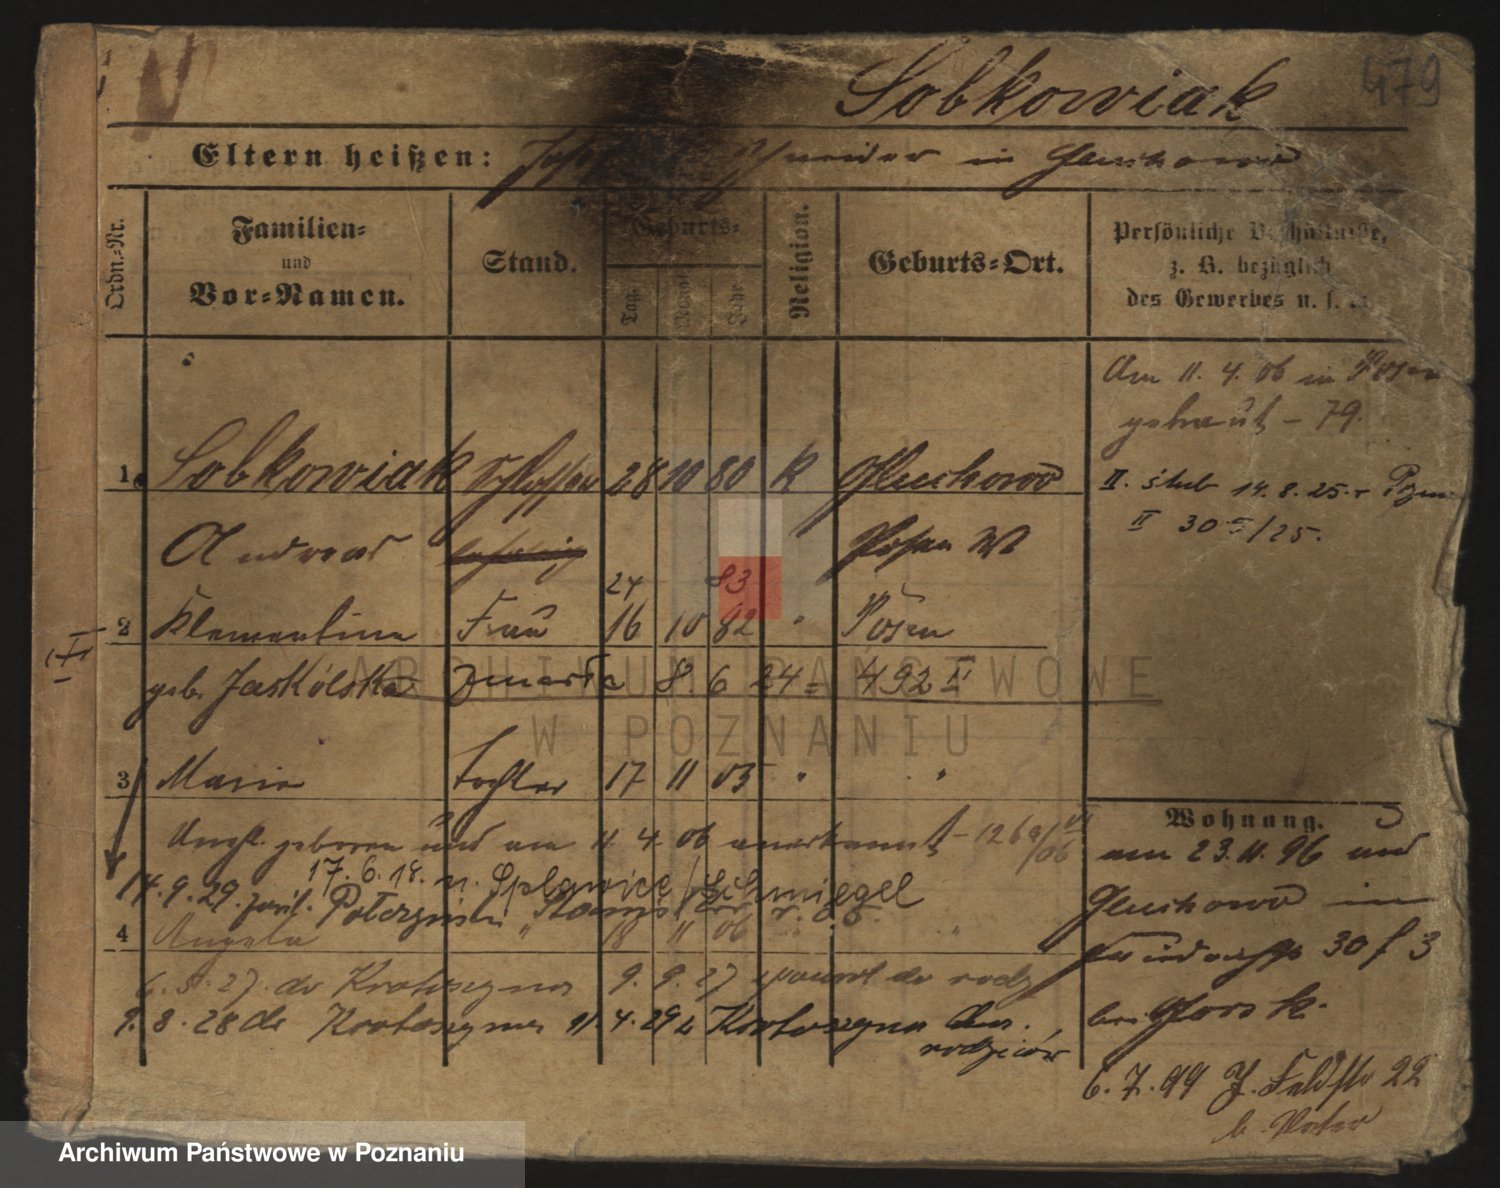 479
Sobkowiak
Eltern heißen: Schneider in Gluchowo
Ordn.-Nr.
Familien-
und
Vor-Namen.
Stand.
Geburts-
Tag.
Monat
Jahr
Religion.
Geburts-Ort.
Persönliche Verhältnisse,
z. B. bezüglich
des Gewerbes u. s. w.
Am 11. 4. 06 in Posen
getraut - 79.
1. Sobkowiak Schlosser 28 10 80 K Gluchowo
II. ślub 14.8.25. Pozn
II 30 /25.
Andreas Posen W
24 83
2 Klementine Frau 16 10 82 " Posen
geb. Jaskólska zmarła 8 6 24 = 492 II
3 Marie Tochter 17 11 05 " "
Angbl. geboren und am 11. 4. 06 anerkannt - 1269/06 VI
17. 6. 18. n. Splawice / Schmiegel
14.9.29. Połczyński
4 Angela " 18 11 06 " "
6.8.27 do Krotoszyna 9. 9. 27 powrót do rodz
9. 8. 28 do Krotoszyna 11. 4. 29 z Krotoszyna do
rodziców
Wohnung.
am 23. 11. 96 aus
Gluchowo in
30 f 3
bei Gorsk.
6. 7. 99 J. Feldstr 22
b.
ARCHIWUM PAŃSTWOWE
W POZNANIU
Archiwum Państwowe w Poznaniu